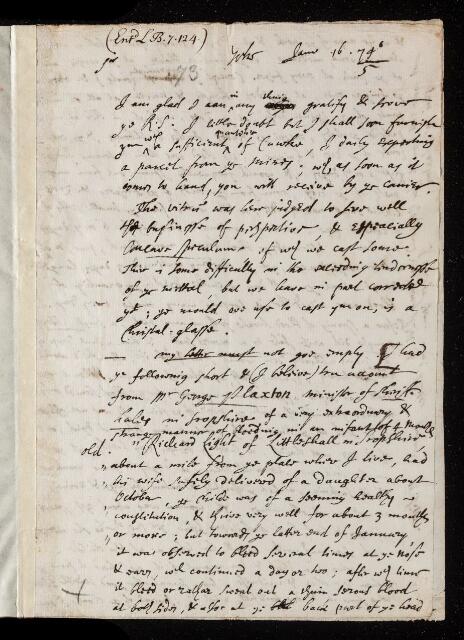 (Ent'd L.B. 7. 124.)
Yorke Janv 16. 74/5
Sr 173
I am glad I can in any thing gratify & serve
ye R.S. I little doubt but I shall soon furnish
you wth a sufficient of Cawke, I daily expecting
a parcel from ye mines; wch as soon as it
comes to hand, you will receive by ye carrier.
The vitrum was here judged to serve well
ye businesse of perspective, & especially
Concave speculums of wch we cast some.
There is some difficulty in the exceeding tendernesse
of ye mettal, but we have in part corrected
yt; ye mould we use to cast ym on, is a
Christal-glasse.
my letter must not goe empty I had
ye following short & (I believe) true account
from Mr George Plaxton, minister of
hales in sropshire of a very extraordinary &
strange manner of bleeding in an infant of 4 months
old. "Richard Light of Littleshall in sropshire
"about a mile from ye place where I live, had
his wife safely delivered of a daughter about
October, ye childe was of a seeming healthy
constitution, & thrive very well for about 3 months
"or more; but towards ye latter end of January
it was observed to bleed several times at ye nose
& eares, wch continued a day or two; after wch time
it bleed or rather sweat out a thin serous blood
at both sides, & also at ye back part of ye head